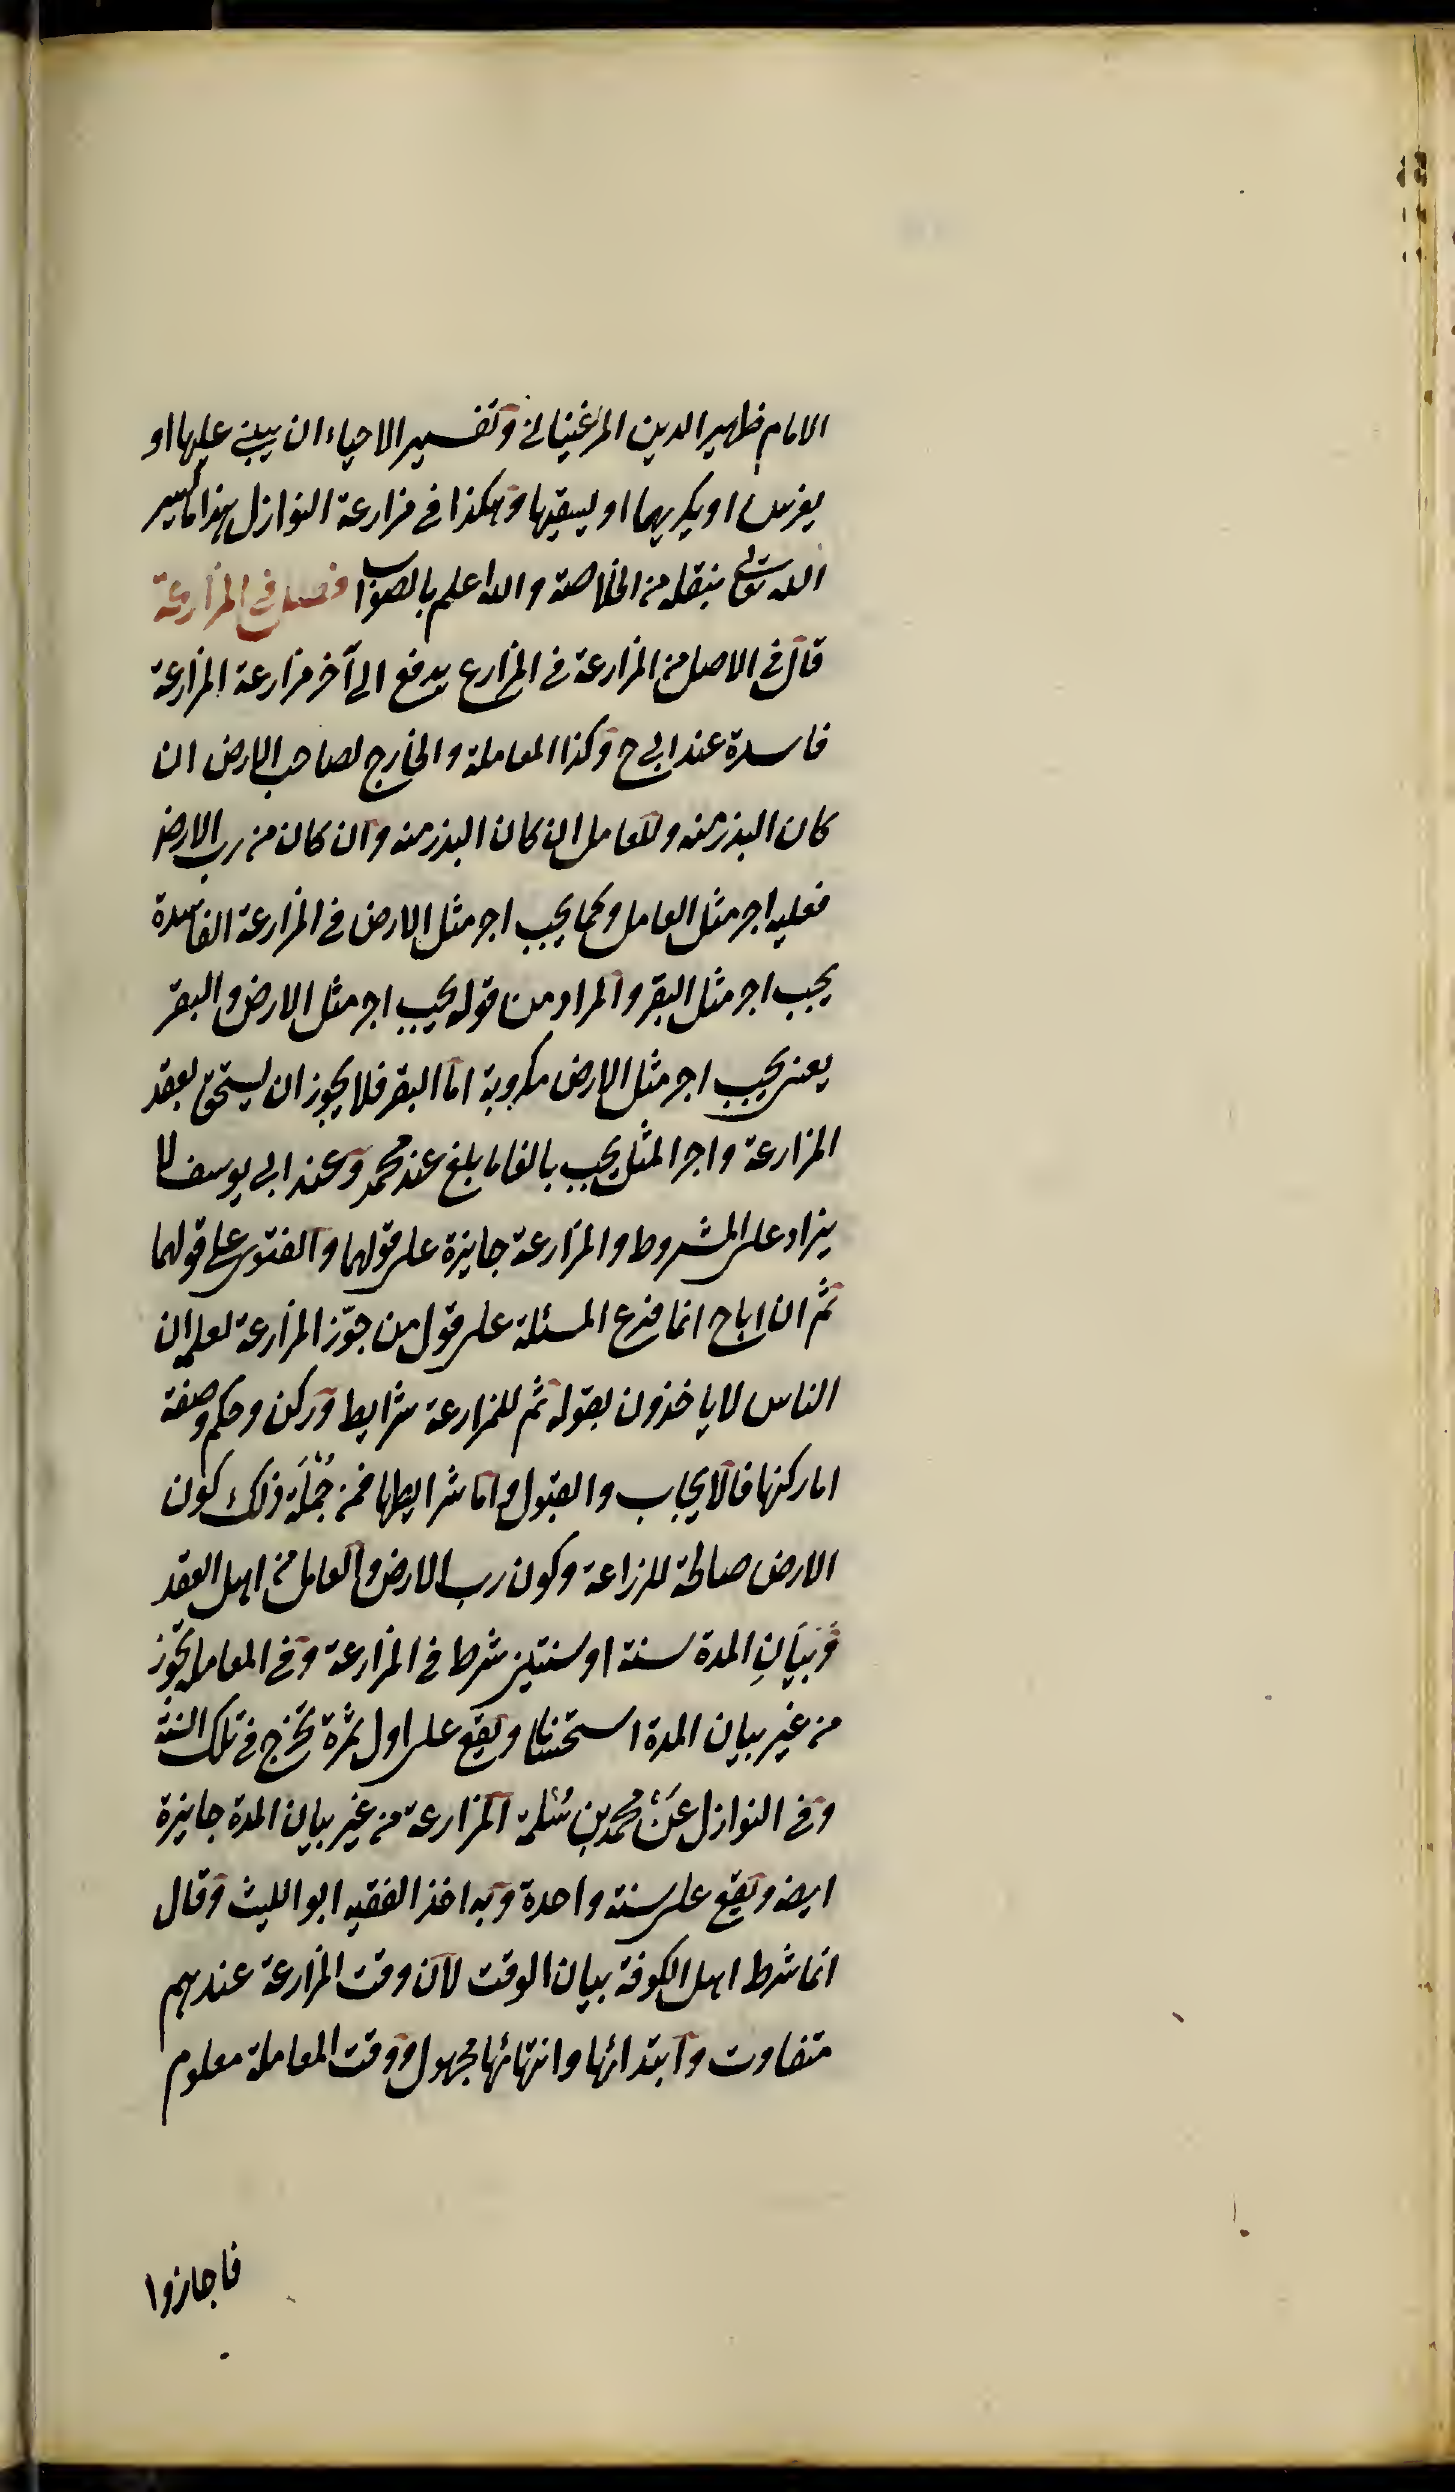 الامام ظهير الدين المرغيناني وتفسير الاحياء ان يبنى عليها او
يغرس او يكريها او يسقيها وهكذا في مزارعة النوازل هذا ما يسر
الله تعالى بنقله من الخلاصة والله اعلم بالصواب فصل في المزارعة
قال في الاصل من المزارعة في المزارع يدفع الى آخر مزارعة المزارعة
فاسدة عند ابي ح وكذا المعاملة والخارج لصاحب الارض ان
كان البذر منه وللعامل ان كان البذر منه وان كان من رب الارض
فعليه اجر مثل العامل وكما يجب اجر مثل الارض في المزارعة الفاسدة
يجب اجر مثل البقر والمراد من قوله يجب اجر مثل الارض والبقر
يعنى يجب اجر مثل الارض مكروبة اما البقر فلا يجوز ان يستحق بعقد
المزارعة واجر المثل يجب بالغا ما بلغ عند محمد وعند ابي يوسف لا
يزاد على المشروط والمزارعة جايزة على قولهما والفتوى على قولهما
ثم ان اباح انما فرع المسئلة على قول من جوّز المزارعة لعلمه ان
الناس لا ياخذون بقوله ثم للمزارعة شرايط وركن وحكم وصفة
اما ركنها فالايجاب والقبول واما شرايطها فمن جُمْلَة ذلك كون
الارض صالحة للزراعة وكون رب الارض والعامل من اهل العقد
وَبَيَانِ المدة سنة او سنتين شرط في المزارعة وفي المعاملة يجوز
من غير بيان المدة استحسانا ويقع على اول ثمرة تخرج في تلك السنة
وفي النوازل عَنْ محمد بن سَلمة المزارعة من غير بيان المدة جايزة
ايضا ويقع على سنة واحدة وبه اخذ الفقيه ابو الليث وقال
انما شرط اهل الكوفة بيان الوقت لان وقت المزارعة عندهم
متفاوت وابتدائها وانتهائها مجهول ووقت المعاملة معلوم
فاجازوا